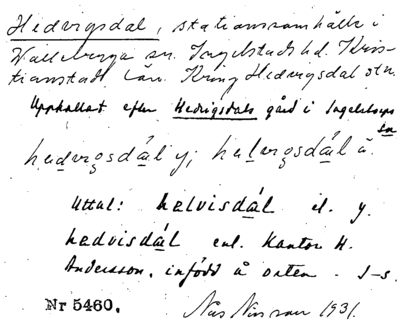 Hedvigsdal, stationssamhälle i
Valleberga sn. Ingelstads hd. Kris-
tianstads län. Kring Hedvigsdal stn.
Uppkallat efter Hedvigsdals gård i Ingelstorps
sn
hedvigsdál y; helvigsdál ä.
Uttal: helvisdál el. y.
hedvisdál enl. Kantor H.
Andersson, infödd å orten. J-s.
Nr 5460.
Nils Nilsson 1931.